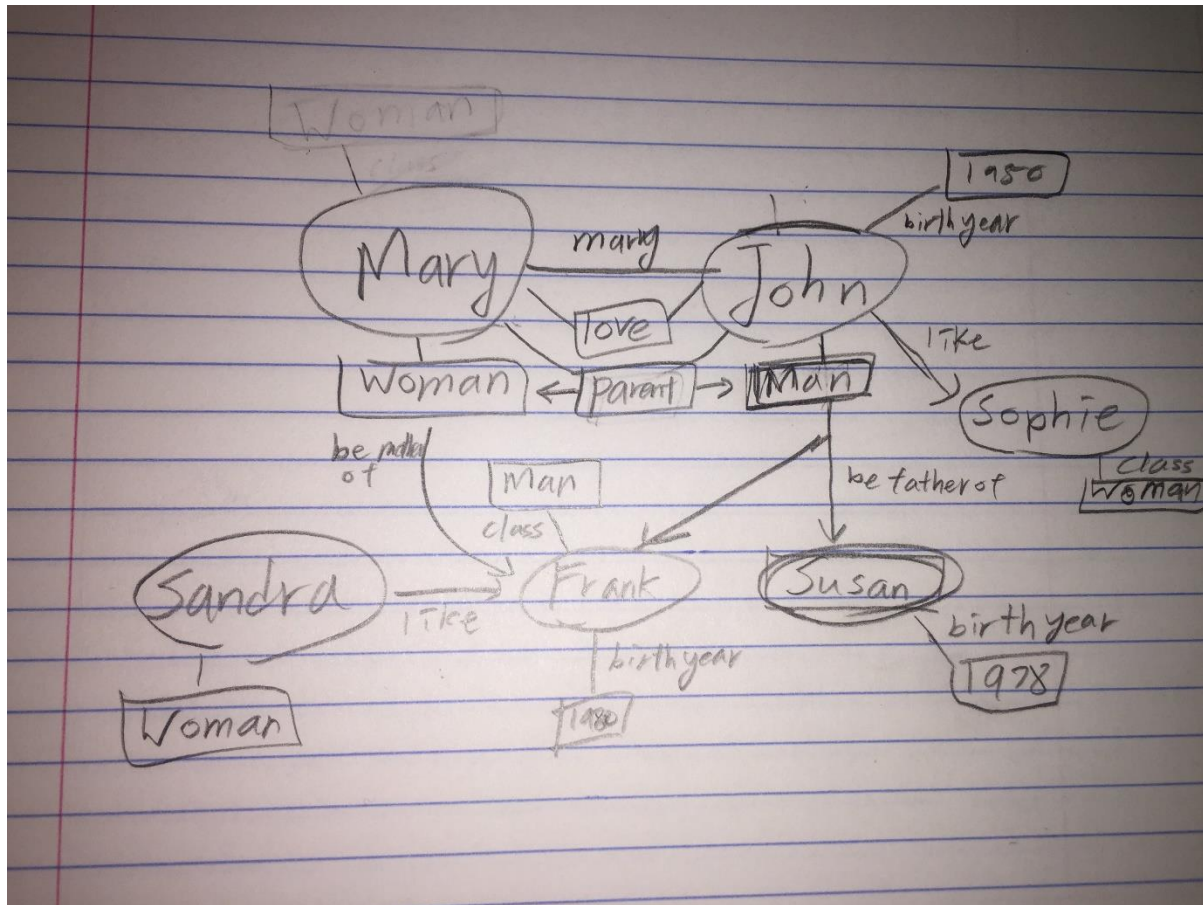 Woman
class
1950
birthyear
Mary
marry
John
love
like
Woman
Parent
Man
Sophie
class
Woman
be mother
of
Man
be father of
class
Sandra
like
Frank
Susan
birthyear
birthyear
Woman
1980
1978